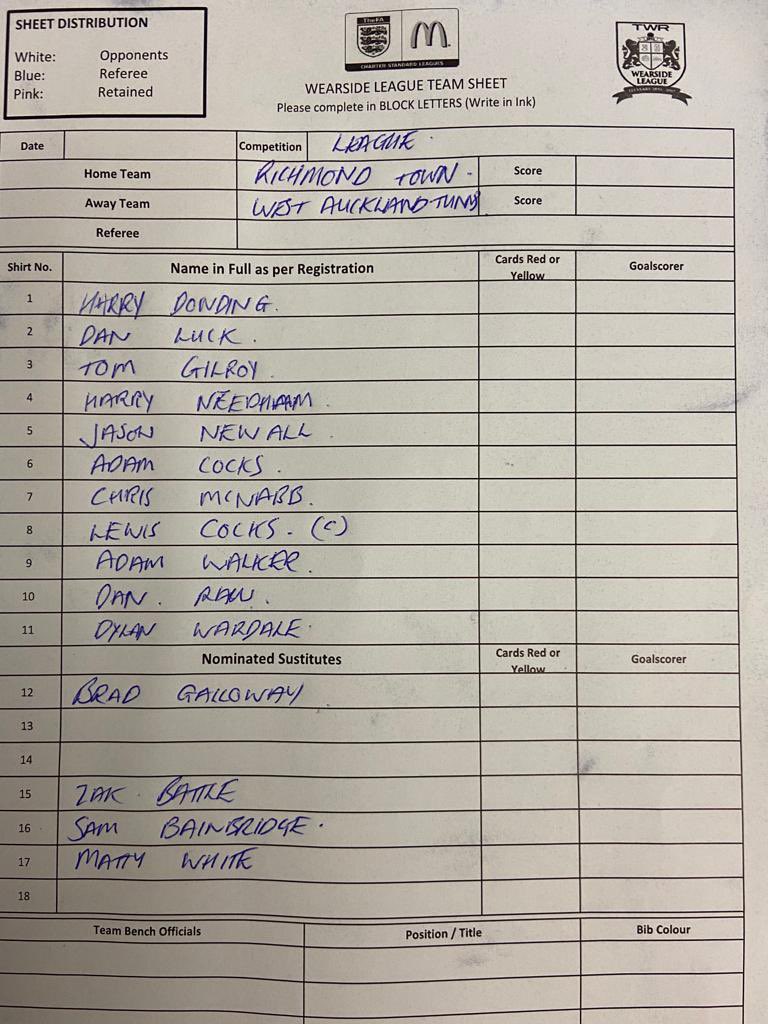 SHEET DISTRIBUTION
White: Opponents
Blue: Referee
Pink: Retained
The FA
CHARTER STANDARD LEAGUES
TWR
WEARSIDE LEAGUE
WEARSIDE LEAGUE TEAM SHEET
Please complete in BLOCK LETTERS (Write in Ink)
Date Competition LEAGUE
Home Team RICHMOND TOWN Score
Away Team WEST AUCKLAND TUNS Score
Referee
Shirt No. Name in Full as per Registration Cards Red or Yellow Goalscorer
1 HARRY DONDING.
2 DAN LUCK.
3 TOM GILROY.
4 HARRY NEEDHAM.
5 JASON NEWALL.
6 ADAM COCKS.
7 CHRIS MCNABB.
8 LEWIS COCKS. (C)
9 ADAM WALKER.
10 DAN. RAW.
11 DYLAN WARDALE.
Nominated Sustitutes Cards Red or Yellow Goalscorer
12 BRAD GALLOWAY
13
14
15 ZAK BATTLE
16 SAM BAINBRIDGE.
17 MATTY WHITE
18
Team Bench Officials Position / Title Bib Colour